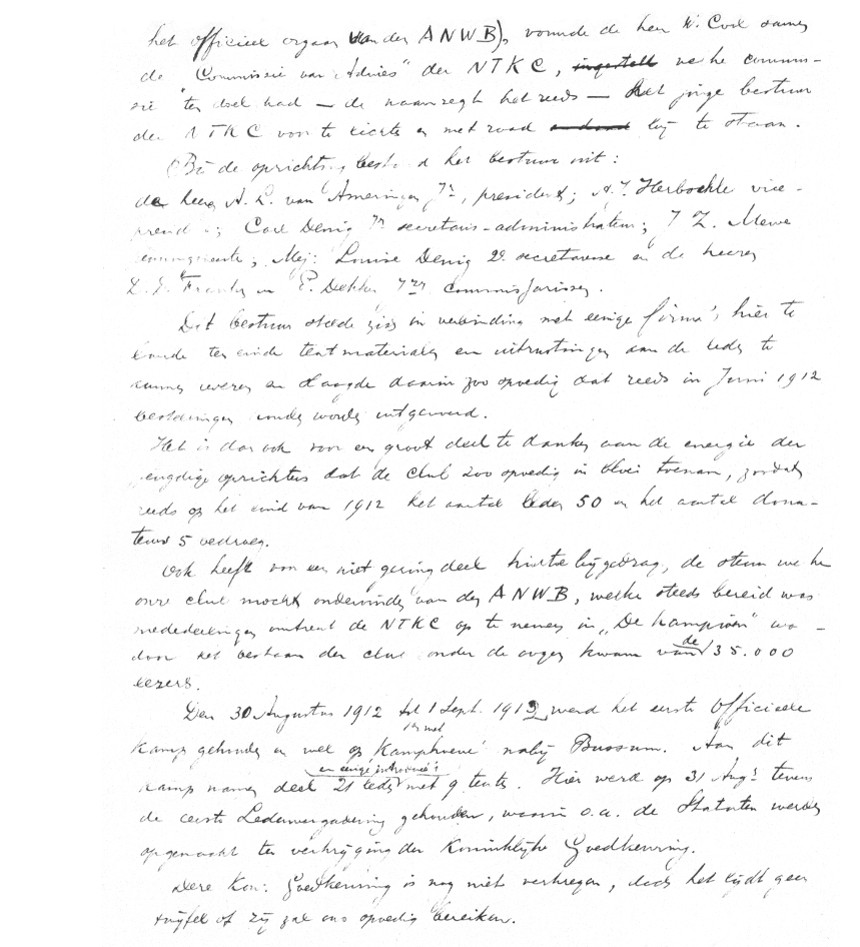 het officieel orgaan van den ANWB), vormde de heer W. Cool samen
de "Commissie van Advies" der NTKC, ingesteld welke commis-
sie ten doel had — de naam zegt het reeds — het jonge bestuur
der NTKC voor te lichten en met raad en daad bij te staan.
Bij de oprichting bestond het bestuur uit:
de heer A. L. van Ameringen Jr, president; A. J. Herbschle vice-
president; Carl Denig Jr secretaris-administrateur; J Z. Mewe
penningmeester; Mej: Louise Denig 2e secretaresse en de heeren
en P. Dekker Jzn commissarissen.
Dit bestuur stelde zich in verbinding met eenige firma's hier te
lande ten einde tentmaterialen en uitrustingen aan de leden te
kunnen leveren en slaagde daarin zoo spoedig dat reeds in Juni 1912
bestellingen konden worden uitgevoerd.
Het is dan ook voor een groot deel te danken aan de energie der
jeugdige oprichters dat de club zoo spoedig in bloei toenam, zoodat
reeds op het eind van 1912 het aantal leden 50 en het aantal dona-
teurs 5 bedroeg.
Ook heeft voor een niet gering deel hiertoe bijgedragen, de steun welke
onze club mocht ondervinden van den ANWB, welke steeds bereid was
mededeelingen omtrent de NTKC op te nemen in "De Kampioen" waa-
door het bestaan der club onder de oogen kwam van de 35.000
lezers.
Den 30 Augustus 1912 tot 1 Sept. 1912 werd het eerste officieele
kamp gehouden en wel op 'Kamphoeve' nabij Bussum. Aan dit
kamp namen deel 21 leden en enige introducé's met 9 tenten. Hier werd op 31 Aug: tevens
de eerste Ledenvergadering gehouden, waarin o.a. de Statuten werden
opgemaakt ter verkrijging der Koninklijke Goedkeuring.
Deze Kon: Goedkeuring is nog niet verkregen, doch het lijdt geen
twijfel of zij zal ons spoedig bereiken.